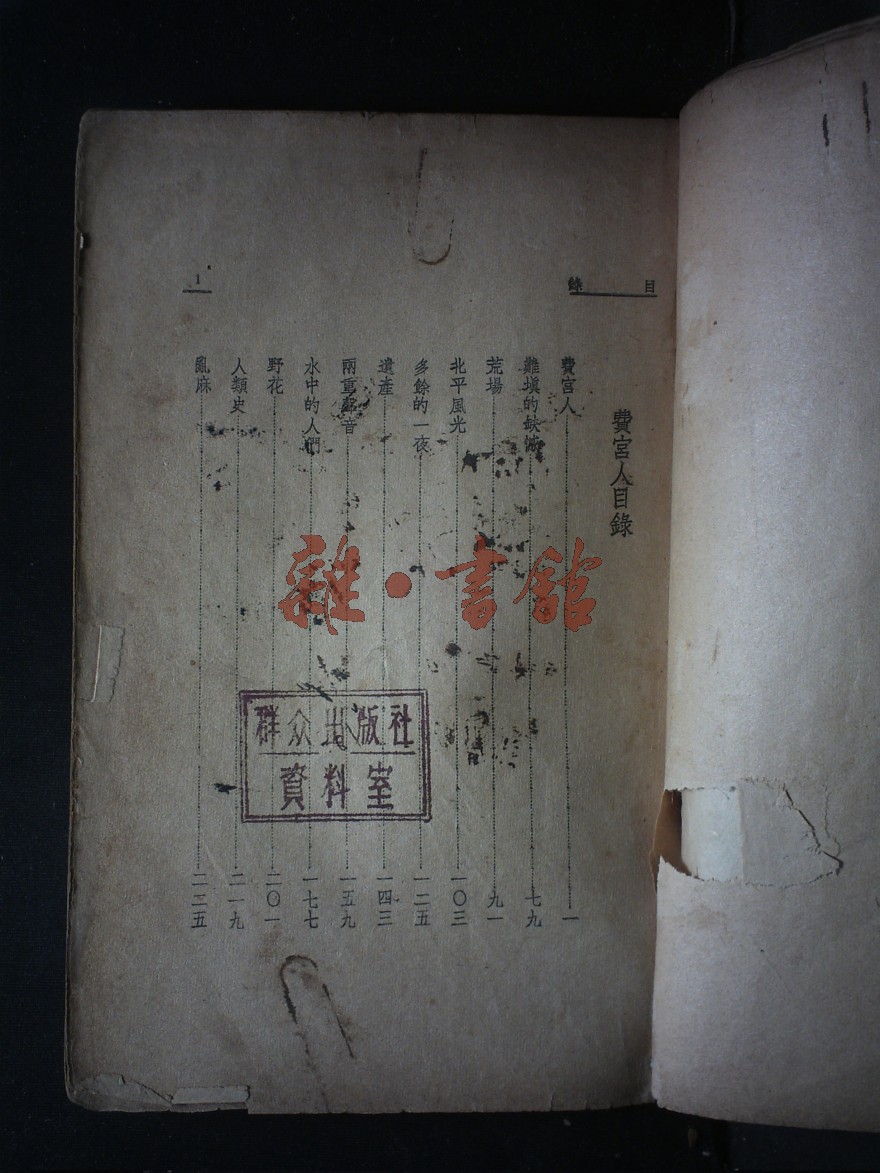 目錄
費宮人目錄
費宮人 一
難塡的缺憾 七九
荒場 九一
北平風光 一〇三
多餘的一夜 一二五
遺產 一四三
兩重聲音 一五九
水中的人們 一七七
野花 二〇一
人類史 二一九
亂麻 二二五
1
雜·書館
群众出版社
資料室